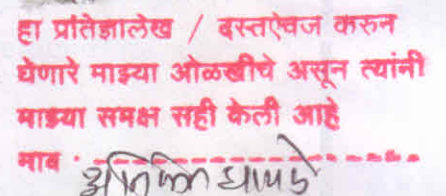 हा प्रतिज्ञालेख / दस्तऐवज करुन
घेणारे माझ्या ओळखीचे असून त्यांनी
माझ्या समक्ष सही केली आहे
नाव